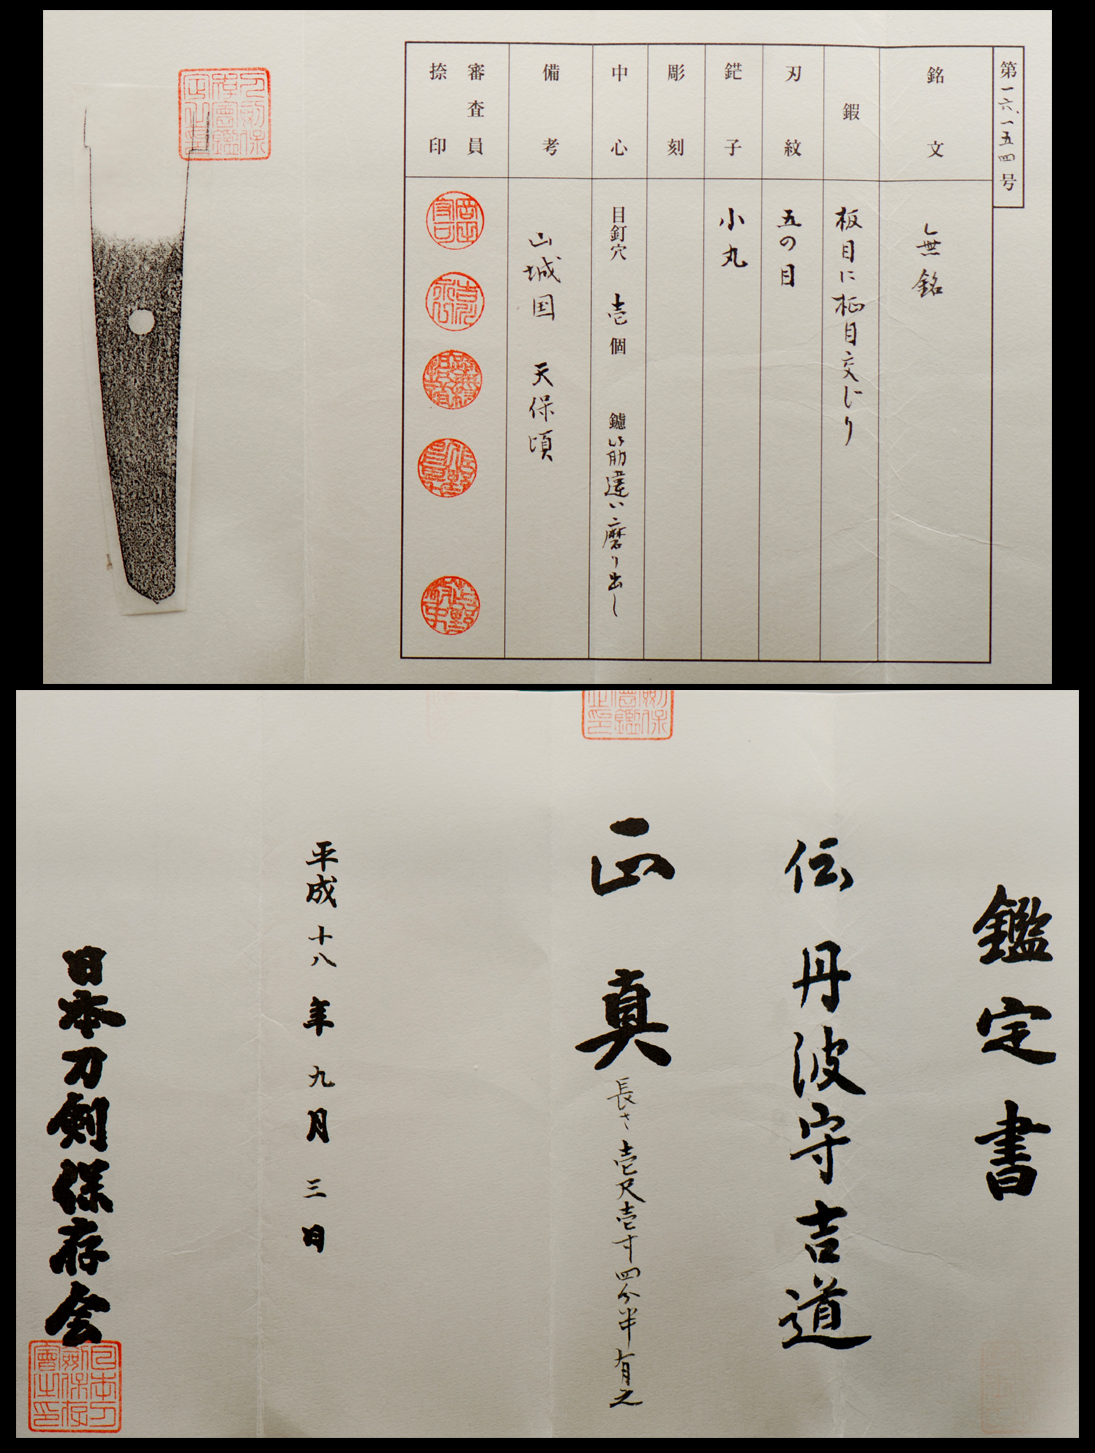 第一六、一五四号
銘文 無銘
鍜 板目に柾目交じり
刃紋 五の目
鋩子 小丸
彫刻
中心 目釘穴 壱個 鑢 筋違い磨り出し
備考 山城国 天保頃
審査員
捺印
鑑定書
伝 丹波守吉道
正真
長さ壱尺壱寸四分半有之
平成十八年九月三日
日本刀剣保存会